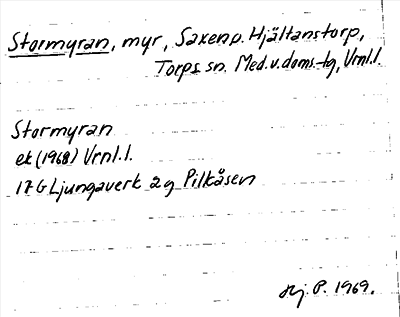 Stormyran, myr, Saxen o. Hjältanstorp,
Torps sn. Med. v. doms-tg, Vrnl. l.
Stormyran
ek (1968) Vrnl. l.
17 G Ljungaverk 2 g Pilkåsen
Hj. P. 1969.